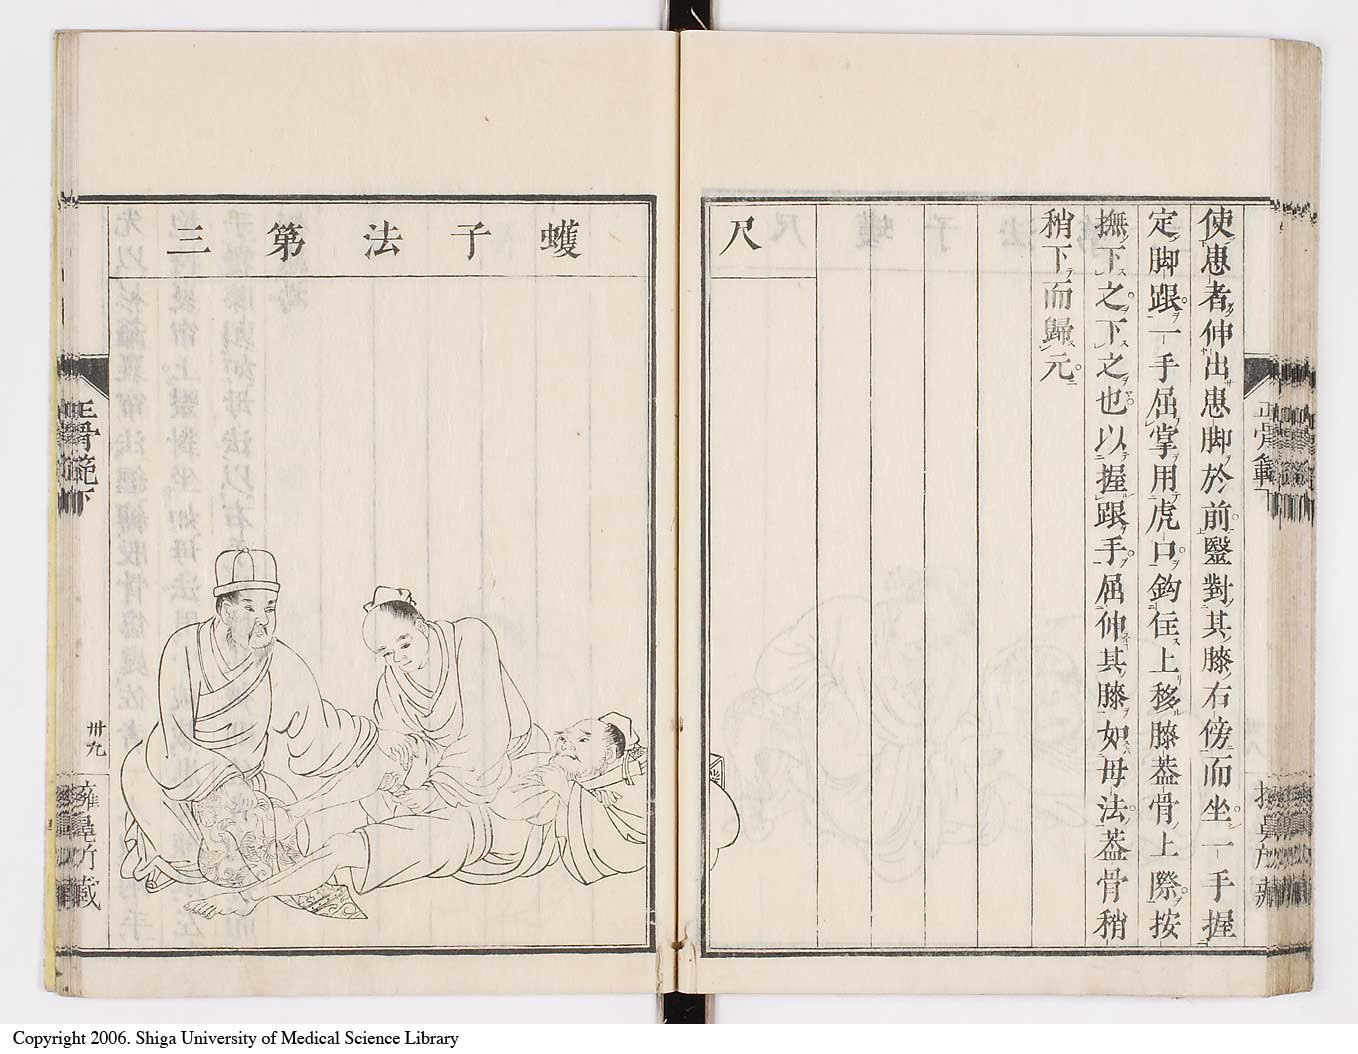 使患者伸出患脚於前毉對其膝右傍而坐一手握
定脚跟一手屈掌用虎口鈎住上移膝葢骨上際按
撫下之下之也以握跟手屈伸其膝如母法葢骨稍
稍下而歸元
尺
蠖子法第三
正骨範下
卅九
Copyright 2006. Shiga University of Medical Science Library